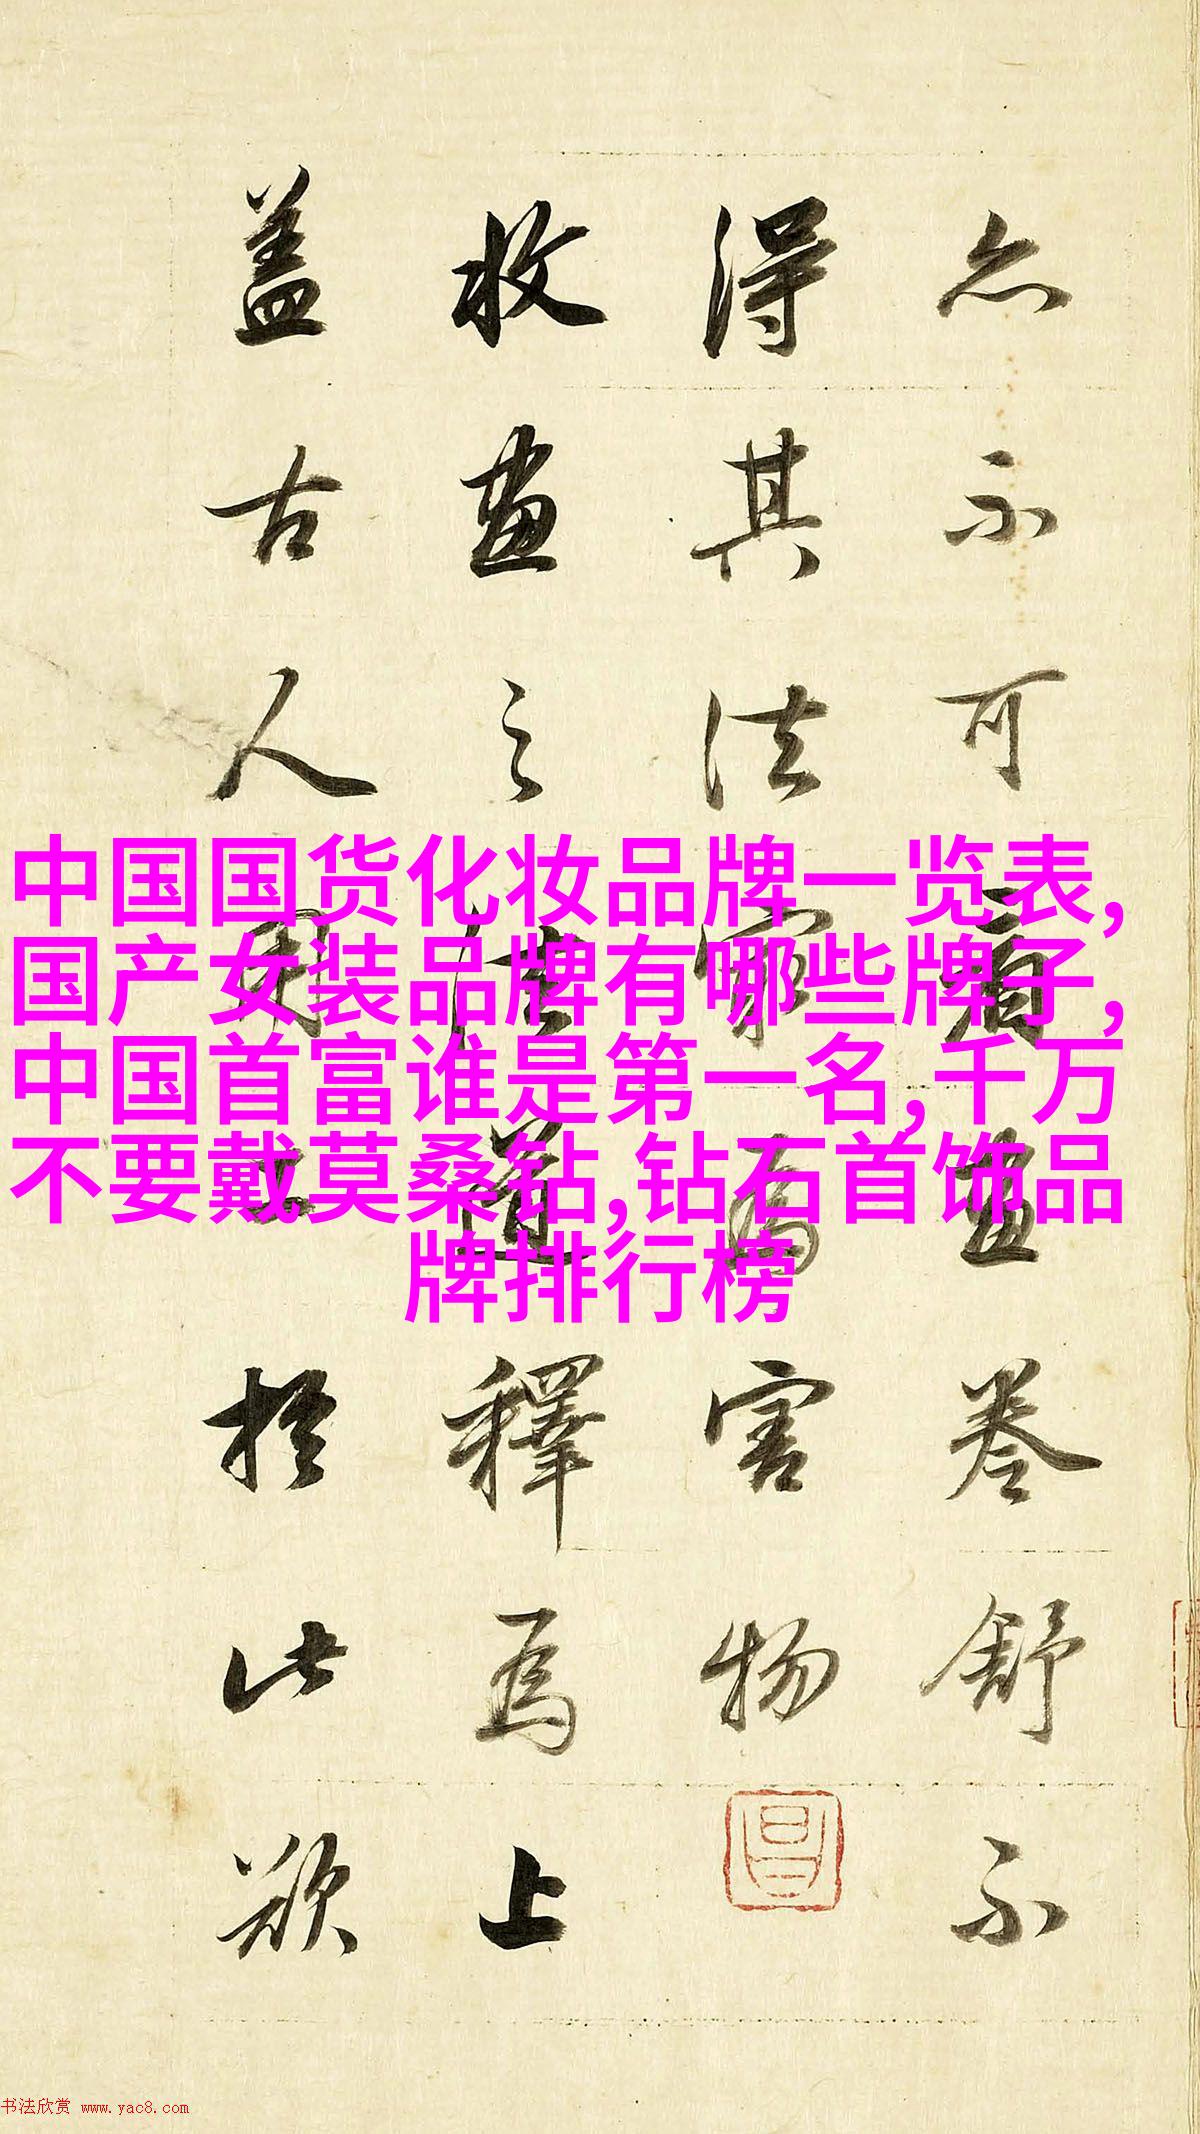 亦不可看畫卷舒不
得其法最為害物
收畫之法道釋為上
盖古人用工於此欲
中国国货化妆品牌一览表,
国产女装品牌有哪些牌子,
中国首富谁是第一名,千万
不要戴莫桑钻,钻石首饰品
牌排行榜
书法欣赏 www.yac8.com